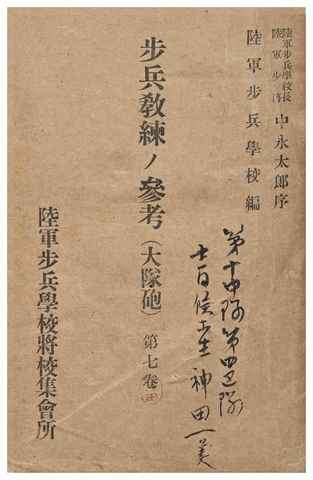 陸軍步兵學校長
陸軍
中永太郎序
陸軍步兵學校編
第十中隊第四區隊
士官候補生 神田一美
步兵敎練ノ參考(大隊砲) 第七卷
陸軍步兵學校將校集會所